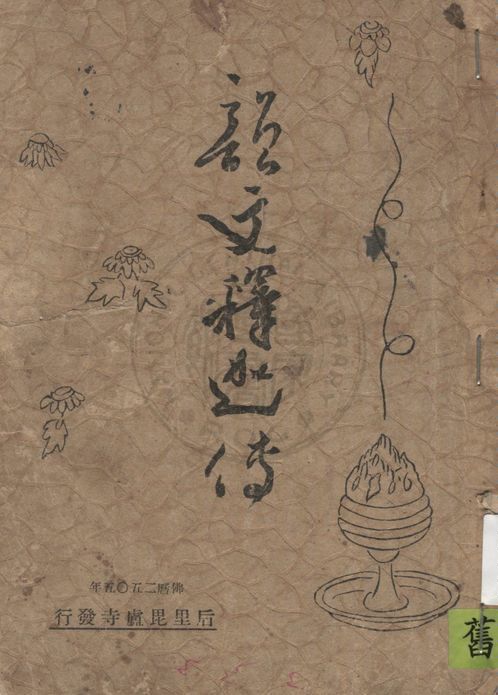 韻文釋迦傳
佛曆二五〇五年
后里毘盧寺發行
舊